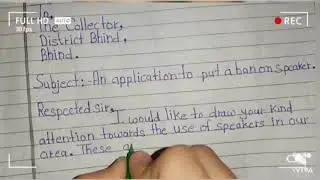 FULL HD AUTO
30fps
REC
To,
The Collector,
District Bhind,
Bhind.
Subject:- An application to put a ban on speaker.
Respected sir,
I would like to draw your kind
attention towards the use of speakers in our
area. These